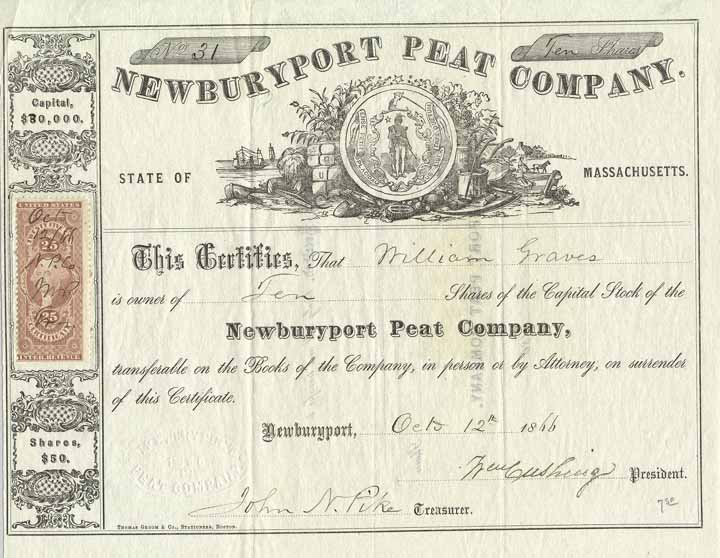 No. 31
Ten Shares
NEWBURYPORT PEAT COMPANY.
Capital,
$30,000.
STATE OF
MASSACHUSETTS.
UNITED STATES
Oct 12
25
25
N. P. Co
CERTIFICATE
INTER. REVENUE
This Certifies, That William Graves
is owner of Ten Shares of the Capital Stock of the
Newburyport Peat Company,
transferable on the Books of the Company, in person or by Attorney, on surrender
of this Certificate.
Newburyport, Octo 12th 1866
Shares,
$50.
PEAT COMPANY
Wm Cushing President.
John N. Pike Treasurer.
THOMAS GROOM & CO., STATIONERS, BOSTON.